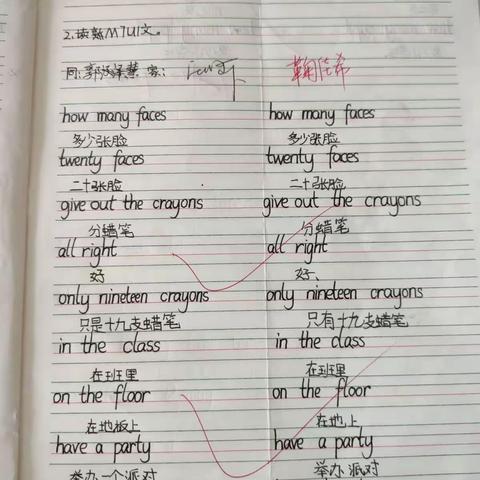 2.读熟M7U1文。
how many faces how many faces
多少张脸 多少张脸
twenty faces twenty faces
二十张脸 二十张脸
give out the crayons give out the crayons
分蜡笔 分蜡笔
all right all right
好 好、
only nineteen crayons only nineteen crayons
只是十九支蜡笔 只有十九支蜡笔
in the class in the class
在班里 在班里
on the floor on the floor
在地板上 在地上
have a party have a party
举办一个派对 举办派对